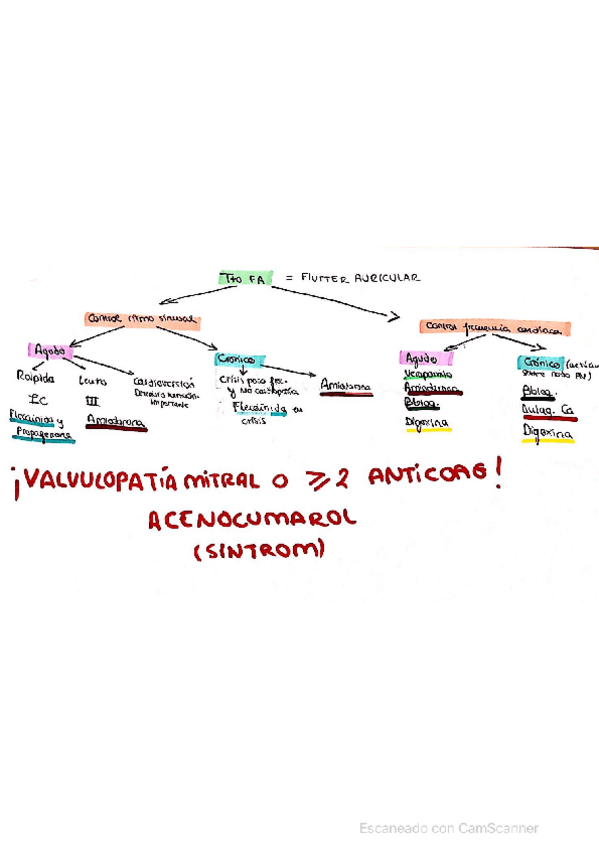 Tto FA = FLUTTER AURICULAR
Control ritmo sinusal
Control frecuencia cardiaca
Agudo
Rápida
IC
Flecainida y
Propafenona
Lento
III
Amiodarona
Cardioversión
Deterioro hemodin.
importante
Crónico
Crisis poco frec.
y NO cardiopatía
Flecainida en
crisis
Amiodarona
Agudo
Verapamilo
Amiodarona
Bbloq.
Digoxina
Crónico
sobre nodo AV)
Bbloq.
Antag. Ca
Digoxina
¡VALVULOPATÍA MITRAL O ≥2 ANTICOAG!
ACENOCUMAROL
(SINTROM)
Escaneado con CamScanner